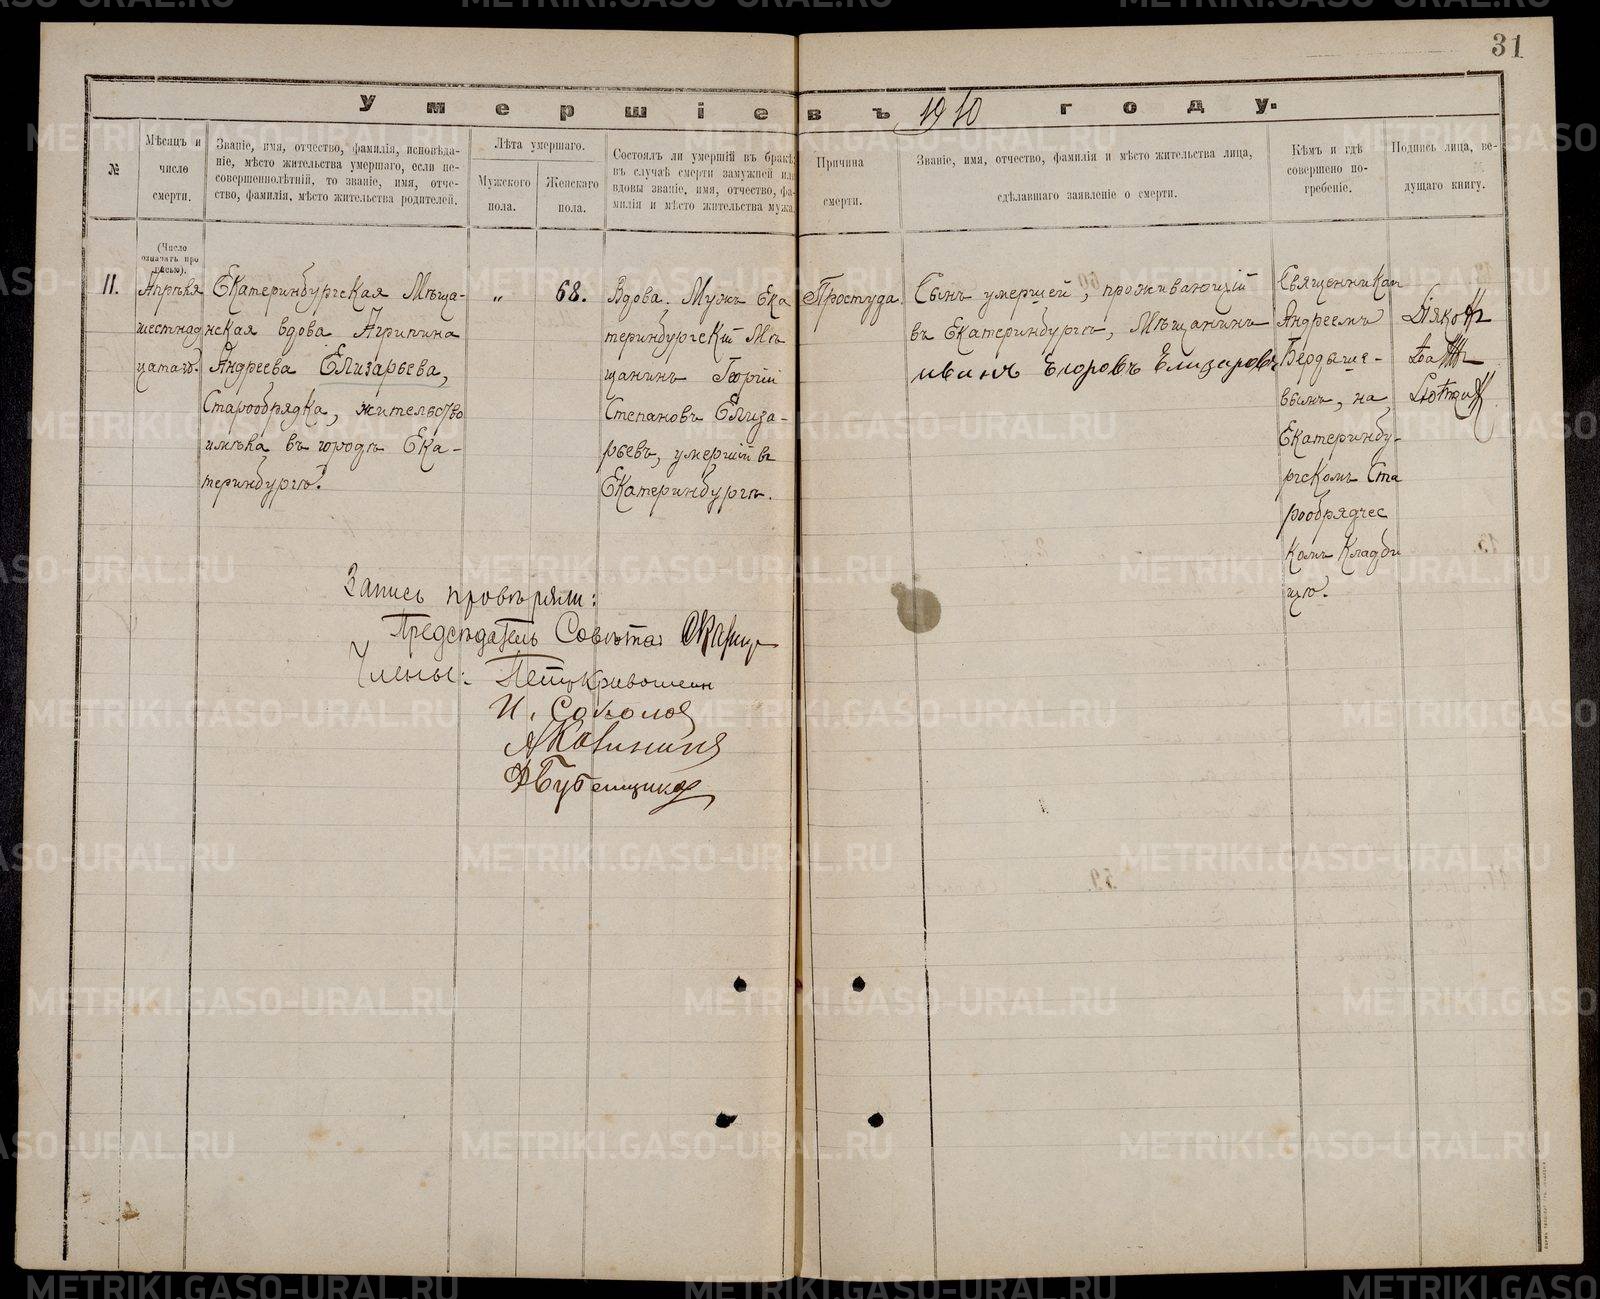 31
Умершіе въ 1910 году.
№
Мѣсяцъ и
число
смерти.
Званіе, имя, отчество, фамилія, исповѣда-
ніе, мѣсто жительства умершаго, если не-
совершеннолѣтній, то званіе, имя, отче-
ство, фамилія, мѣсто жительства родителей.
Лѣта умершаго.
Мужского
пола.
Женскаго
пола.
Состоялъ ли умершій въ бракѣ
въ случаѣ смерти замужней или
вдовы званіе, имя, отчество, фа-
милія и мѣсто жительства мужа.
Причина
смерти.
Званіе, имя, отчество, фамилія и мѣсто жительства лица,
сдѣлавшаго заявленіе о смерти.
Кѣмъ и гдѣ
совершено по-
гребеніе.
Подпись лица, ве-
дущаго книгу.
(Число
означать про
писью).
11.
Апрѣля
шестнад
цатаго.
Екатеринбургская Мѣща-
нская вдова Агрипина
Андреева Елизарьева,
Старообрядка, жительство
имѣла въ городѣ Ека-
теринбургѣ.
„
68.
Вдова. Мужъ Ека
теринбургскій Мѣ
щанинъ Георгій
Степановъ Елиза-
рьевъ, умершій въ
Екатеринбургѣ.
Простуда.
Сынъ умершей, проживающій
въ Екатеринбургѣ, Мѣщанинъ
Иванъ Егоровъ Елизаровъ
Священникам
Андреемъ
Бердыше-
вымъ, на
Екатеринбу-
ргскомъ Ста
рообрядчес
комъ Кладби
щѣ.
Запись провѣряли:
Предсѣдатель Совѣта
Члены: Петр Кривошеин
И. Соколов
А Калинин